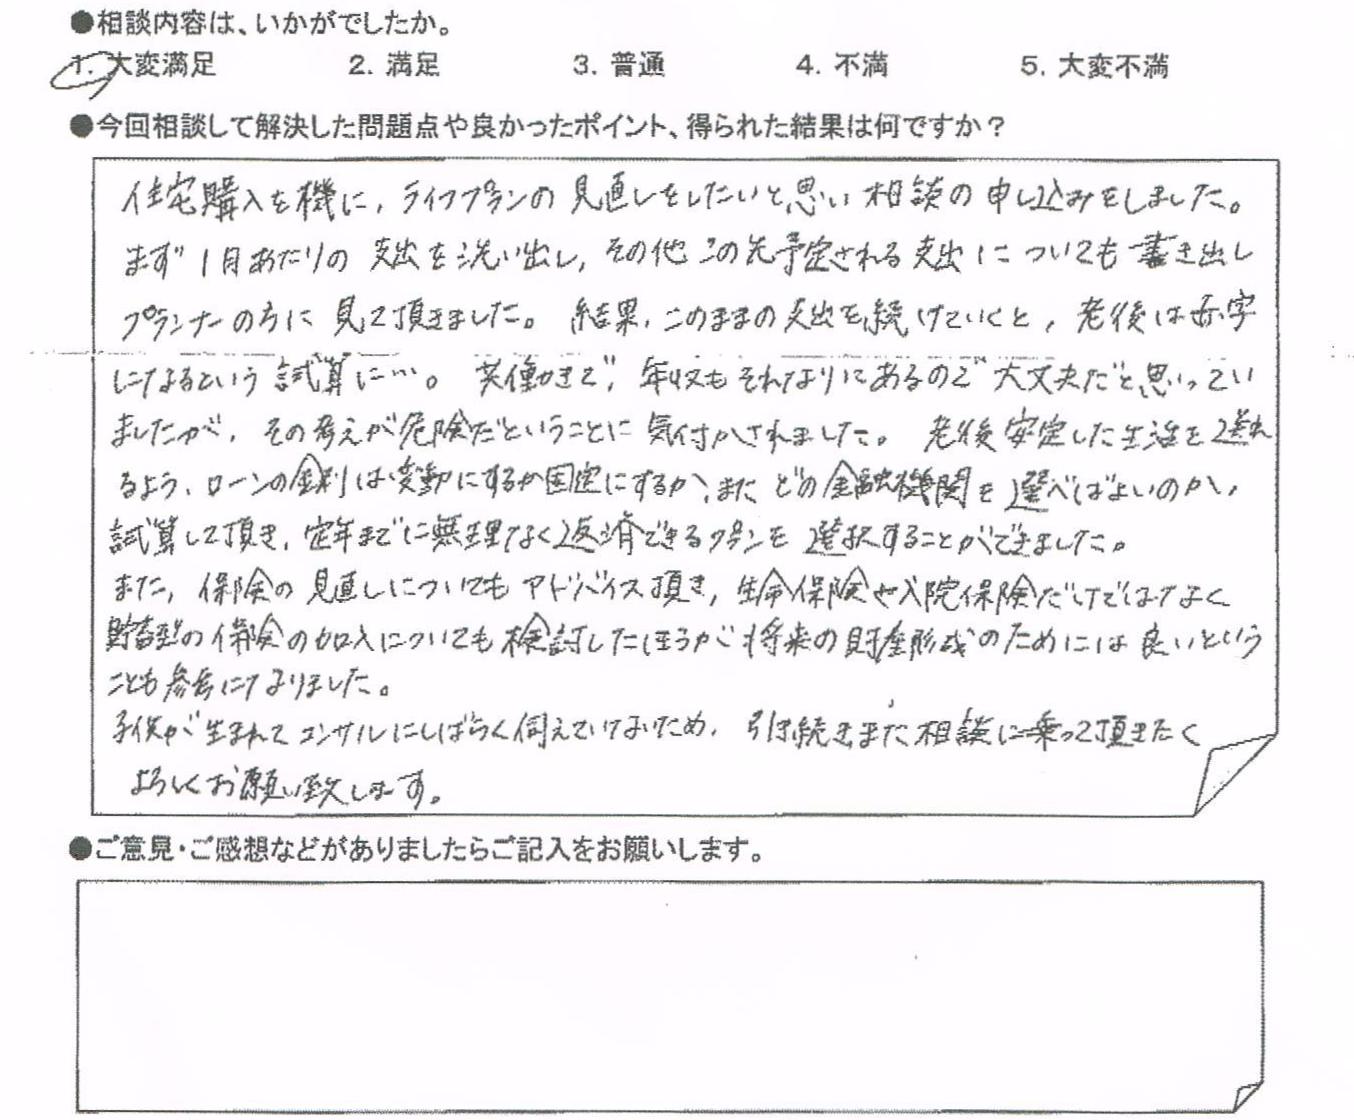 ●相談内容は、いかがでしたか。
1. 大変満足 2. 満足 3. 普通 4. 不満 5. 大変不満
●今回相談して解決した問題点や良かったポイント、得られた結果は何ですか？
住宅購入を機に，ライフプランの見直しをしたいと思い相談の申し込みをしました。
まず1月あたりの支出を洗い出し，その他この先予定される支出についても書き出し
プランナーの方に見て頂きました。結果，このままの支出を続けていくと，老後は赤字
になるという試算に…。共働きで，年収もそれなりにあるので大丈夫だと思ってい
ましたが，その考えが危険だということに気付かされました。老後安定した生活を送れ
るよう，ローンの金利は変動にするか固定にするか，またどの金融機関を選べばよいのか，
試算して頂き，定年までに無理なく返済できるプランを選択することができました。
また，保険の見直しについてもアドバイス頂き，生命保険や入院保険だけではなく
貯蓄型の保険の加入についても検討したほうが将来の財産形成のためには良いという
ことも参考になりました。
子供が生まれてコンサルにしばらく伺えていないため，引き続きまた相談に乗って頂きたく
よろしくお願い致します。
●ご意見・ご感想などがありましたらご記入をお願いします。